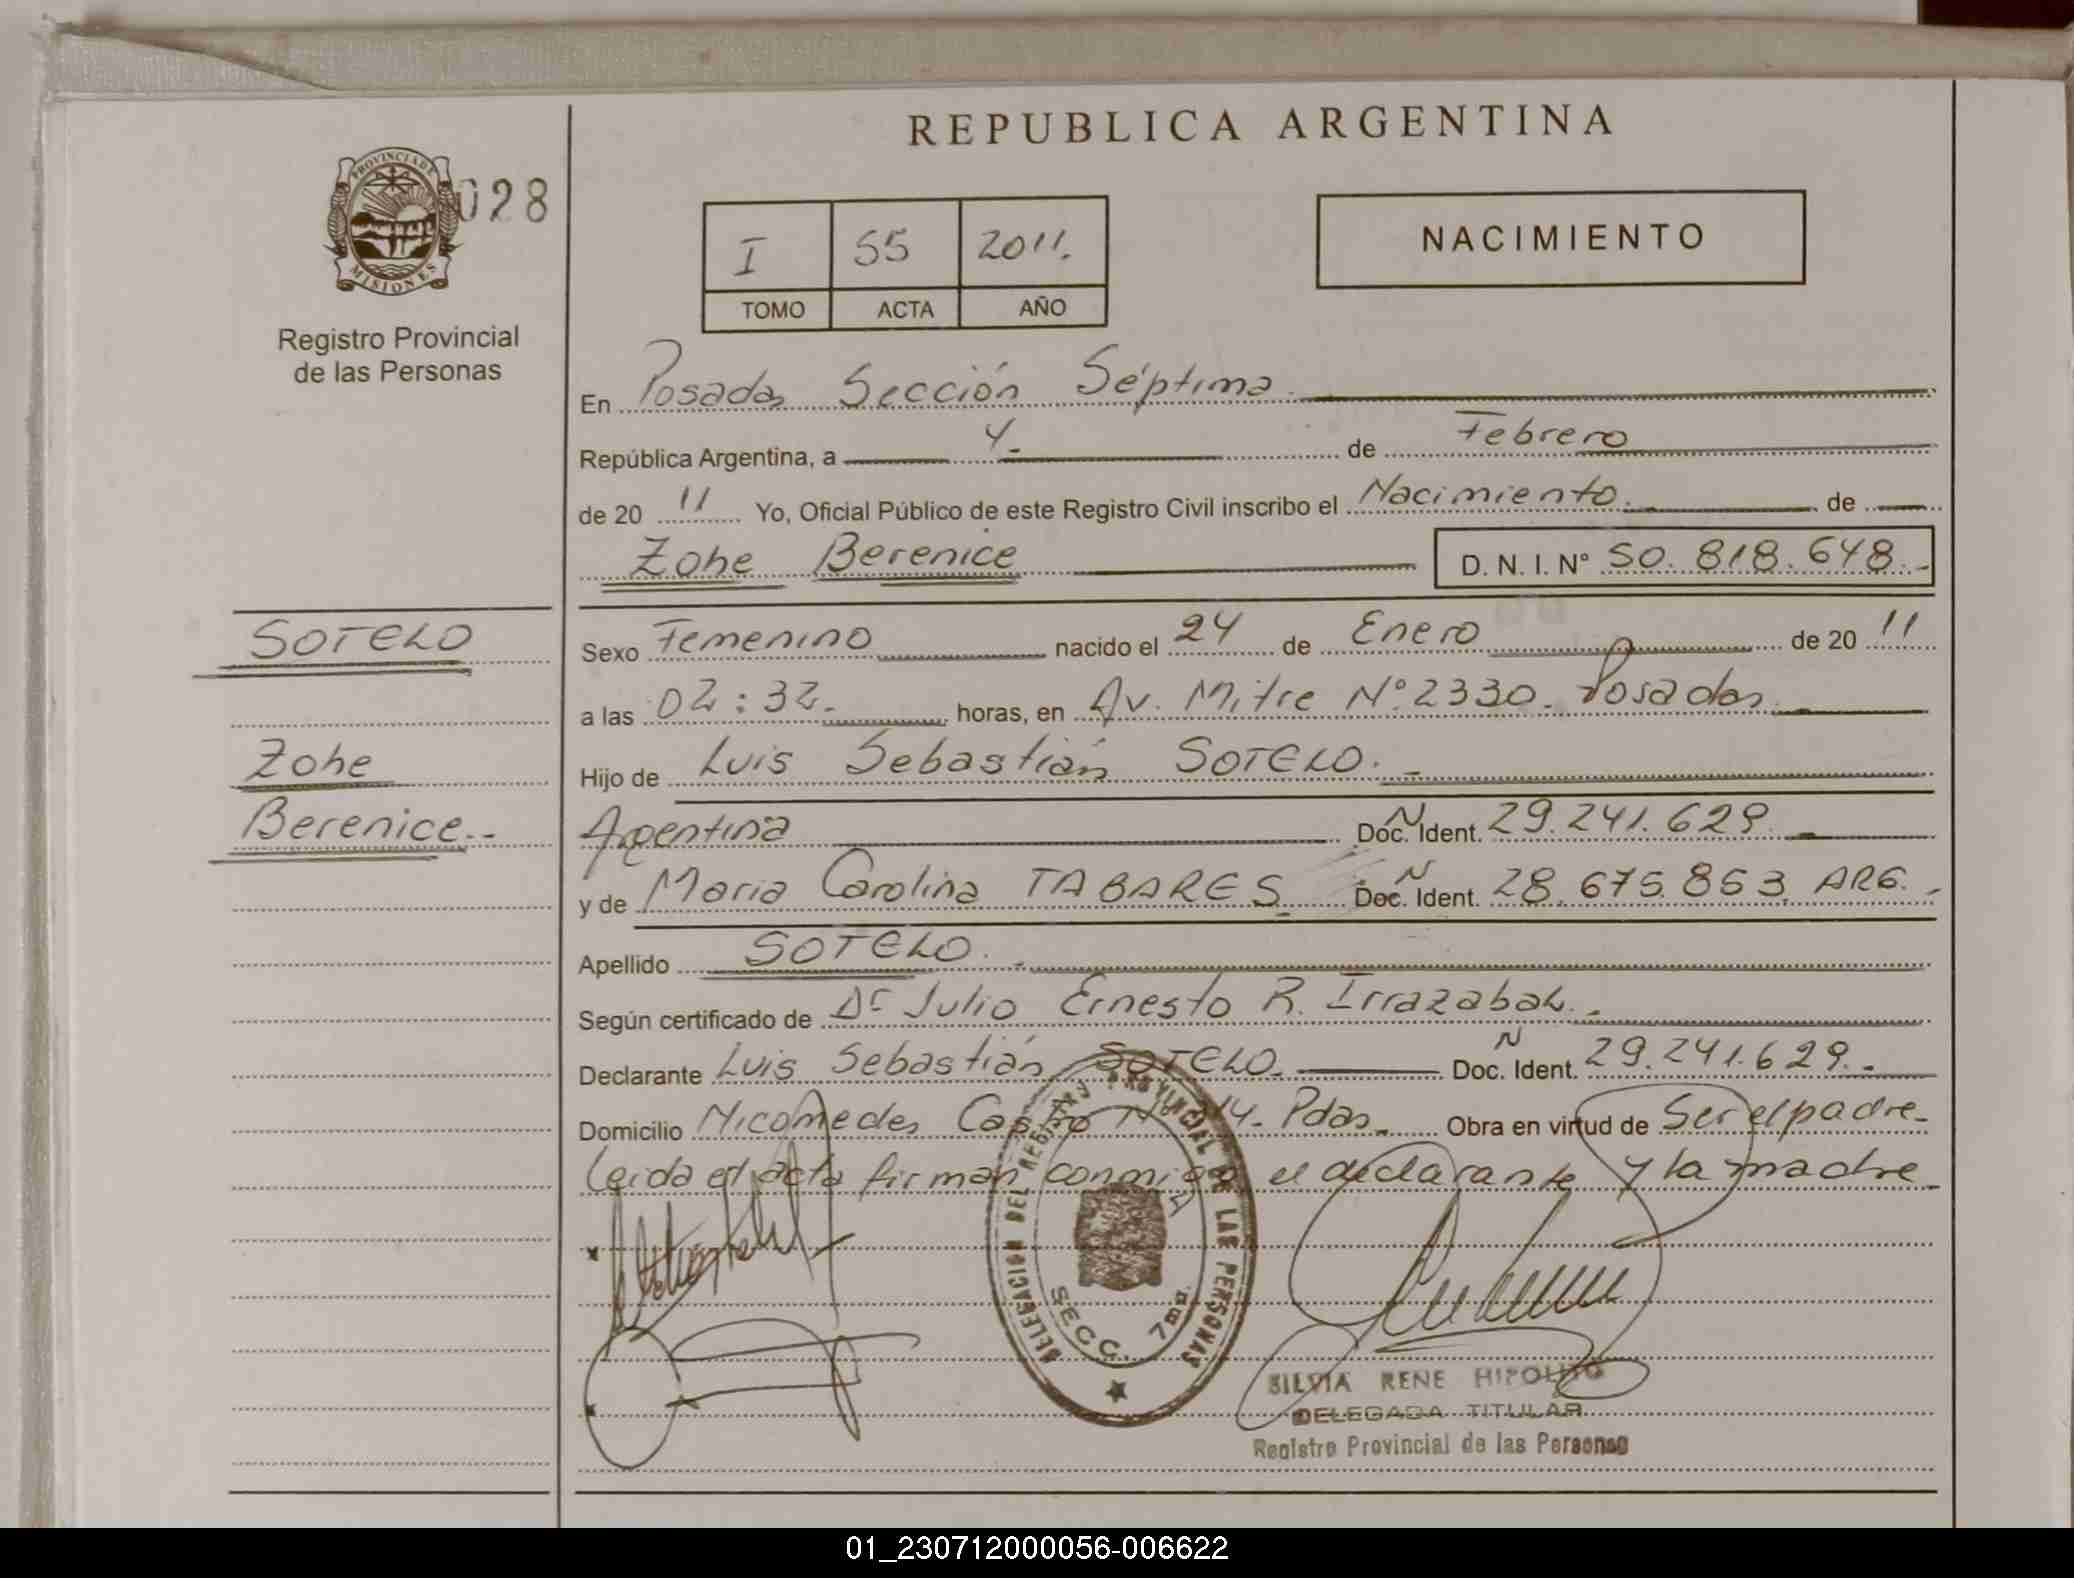 REPUBLICA ARGENTINA
PROVINCIA DE MISIONES
028
Registro Provincial
de las Personas
I 55 2011.
TOMO ACTA AÑO
NACIMIENTO
En Posadas Sección Séptima.
República Argentina, a 4- de Febrero
de 20 11 Yo, Oficial Público de este Registro Civil inscribo el Nacimiento. de
Zohe Berenice D. N. I. N° 50.818.648.-
SOTELO
Zohe
Berenice.-
Sexo Femenino nacido el 24 de Enero de 20 11
a las 02:32. horas, en Av. Mitre N° 2330. Posadas
Hijo de Luis Sebastián SOTELO.-
Argentina Doc. N Ident. 29.241.629.
y de Maria Carolina TABARES Doc. N Ident. 28.675.853 ARG.-
Apellido SOTELO.-
Según certificado de Dr Julio Ernesto R. Irrazabal.-
Declarante Luis Sebastián SOTELO. Doc. N Ident. 29.241.629.-
Domicilio Nicomedes Castro 14. Pdas. Obra en virtud de Ser el padre-
Leida el acta firman conmigo el declarante y la madre-
DELEGACION DEL REGISTRO PROVINCIAL DE LAS PERSONAS
SECC. 7ma.
SILVIA RENE HIPOLITO
DELEGADA TITULAR
Registro Provincial de las Personas
01_230712000056-006622